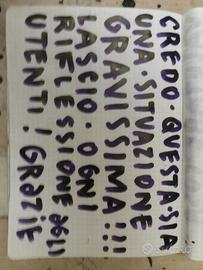 CREDO·QUESTA·SIA
UNA·SITUAZIONE
GRAVISSIMA!!!
LASCIO·OGNI
RIFLESSIONE AGLI
UTENTI! GRAZIE